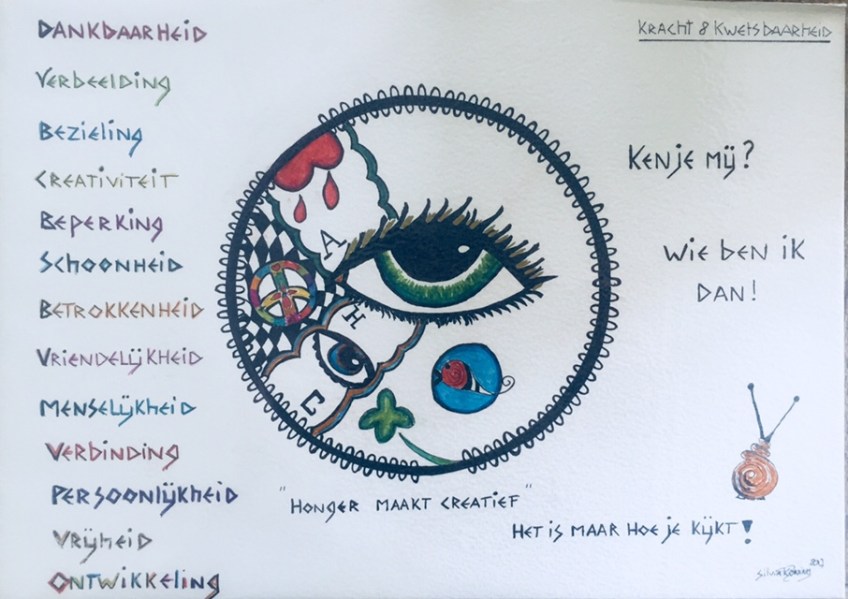 Dankbaarheid
Verbeelding
Bezieling
Creativiteit
Beperking
Schoonheid
Betrokkenheid
Vriendelijkheid
Menselijkheid
Verbinding
Persoonlijkheid
Vrijheid
Ontwikkeling
Kracht & Kwetsbaarheid
Ken je mij?
Wie ben ik
dan!
A
H
C
"Honger maakt creatief"
Het is maar hoe je kijkt!